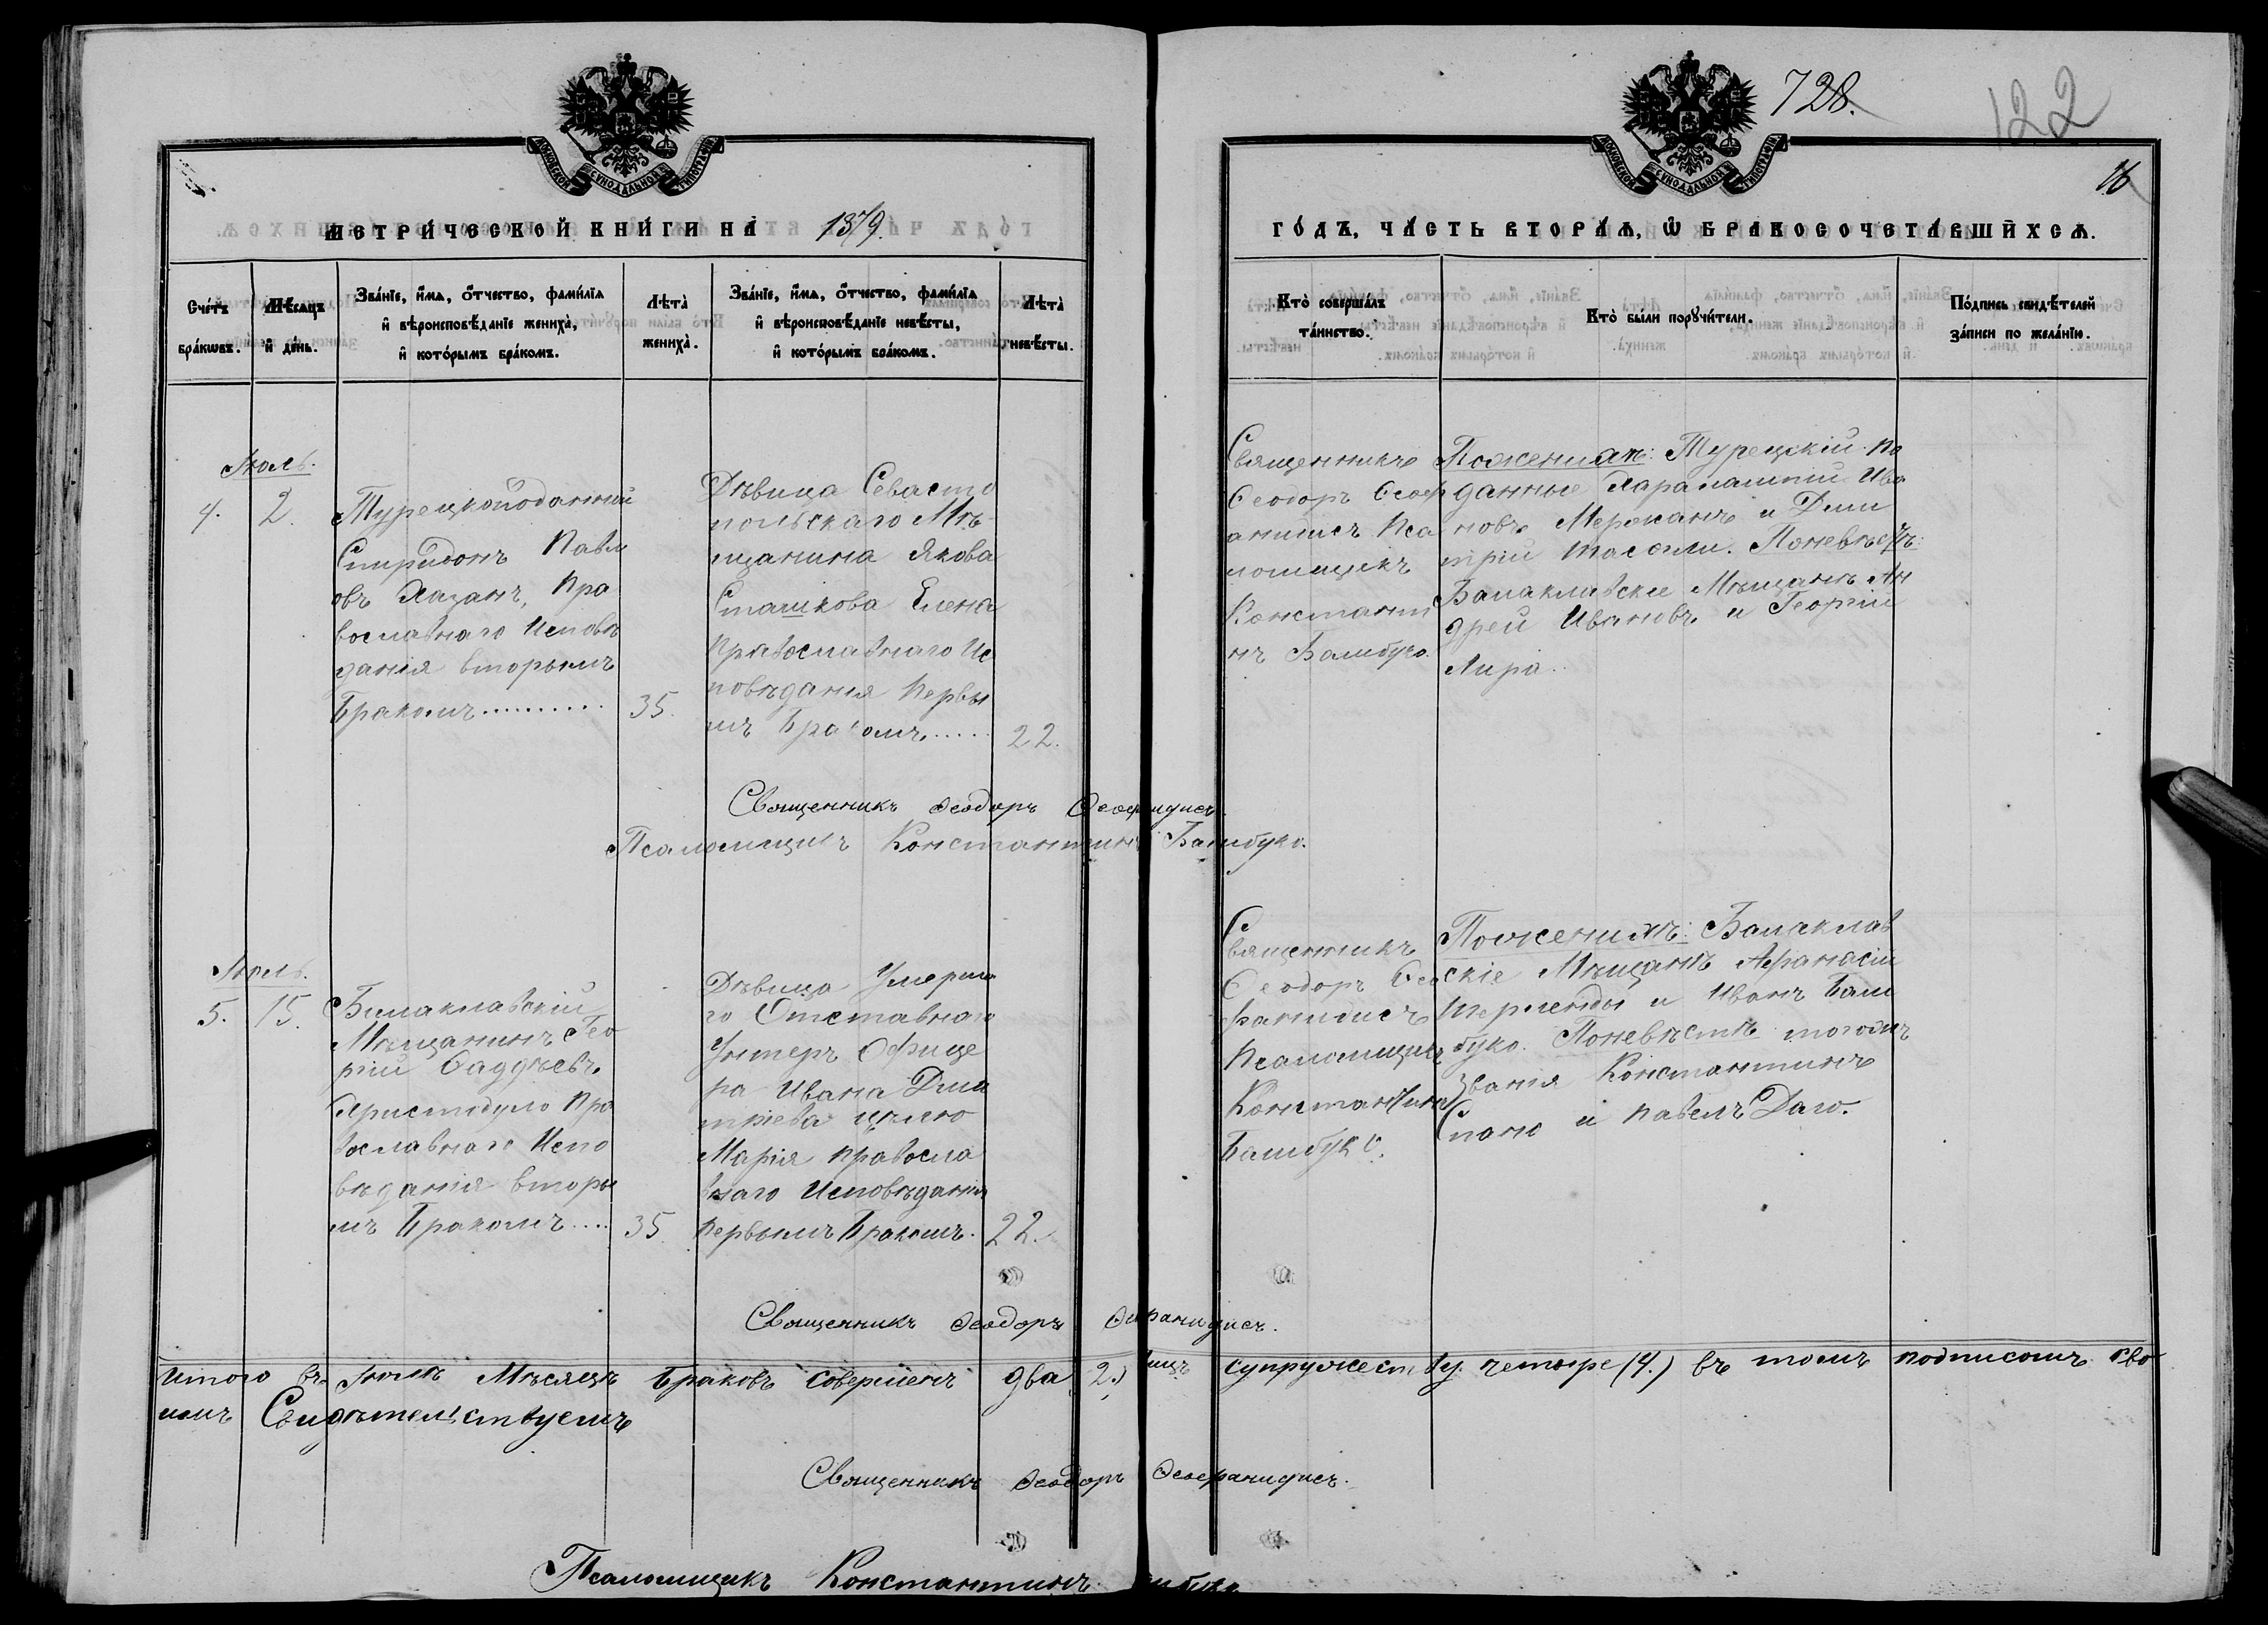 728.
122
16
МОСКОВСКОЙ СѴНОДАЛЬНОЙ ТИПОГРАФІИ
МОСКОВСКОЙ СѴНОДАЛЬНОЙ ТИПОГРАФІИ
МЕТРИ́ЧЕСКОЙ КНИ́ГИ НА̀ 1879.
ГО́ДЪ, ЧА́СТЬ ВТОРА́Ѧ, Ѽ БРАКОСОЧЕТА́ВШИХСѦ.
Сче́тъ
бра́кѡвъ.
Мѣ́сѧцъ
и҆ де́нь.
Зва́нїе, и҆́мѧ, ѻ҆́тчество, фамѝлїѧ
и҆ вѣроисповѣ́данїе жениха̀,
и҆ кото́рымъ бра́комъ.
Лѣта̀
жениха̀.
Зва́нїе, и҆́мѧ, ѻ҆́тчество, фамѝлїѧ
и҆ вѣроисповѣ́данїе невѣ́сты,
и҆ кото́рымъ бра́комъ.
Лѣта̀
невѣ́сты.
Кто̀ соверша́лъ
та́инство.
Кто̀ бы́ли порꙋчи́тели.
По́дпись свидѣ́телей
за́писи по жела́нїю.
Іюль.
4.
2.
Турецкоподанный
Спиридонъ Павл
овъ Хазанъ, Пра
вославнаго Исповѣ
данія вторымъ
Бракомъ..........
35.
Дѣвица Севасто
польскаго Мѣ
щанина Якова
Сташкова Елена
Православнаго Ис
повѣданія Первы
мъ Бракомъ.....
22.
Священникъ
Ѳеодоръ Ѳеоф
анидисъ Пса
ломщикъ
Константи
нъ Бамбуко.
Поженихѣ: Турецкій По
данные Харалампій Ива
новъ Мережанъ и Дми
трій Тасоми. Поневѣстѣ:
Балаклавскіе Мѣщанѣ Ан
дрей Ивановъ и Георгій
Лира.
Священникъ Ѳеодоръ Ѳеофанидисъ.
Псаломщикъ Константинъ Бамбуко.
Іюль.
5.
15.
Балаклавскій
Мѣщанинъ Гео
ргій Ѳаддѣевъ
Христодуло Пра
вославнаго Испо
вѣданія Вторы
мъ Бракомъ....
35.
Дѣвица Умерша
го Отставнаго
Унтеръ Офице
ра Ивана Дми
тріева
Марія правосла
внаго Исповѣданія
Первымъ Бракомъ.
22.
Священникъ
Ѳеодоръ Ѳео
фанидисъ
Псаломщикъ
Константинъ
Бамбуко.
Поженихѣ: Балаклав
скіе Мѣщанѣ Афанасій
Терленды и Иванъ Бам
буко. Поневѣстѣ тогожъ
Званія Константинъ
Спано и Павелъ Даго.
Священникъ Ѳеодоръ Ѳеофанидисъ.
Итого въ Іюлѣ Мѣсяцѣ Браковъ совершенъ два 2.) лицъ супружеству четыре (4.) въ томъ подписомъ сво
имъ Свидѣтельствуемъ
Священникъ Ѳеодоръ Ѳеофанидисъ.
Псаломщикъ Константинъ Бамбуко